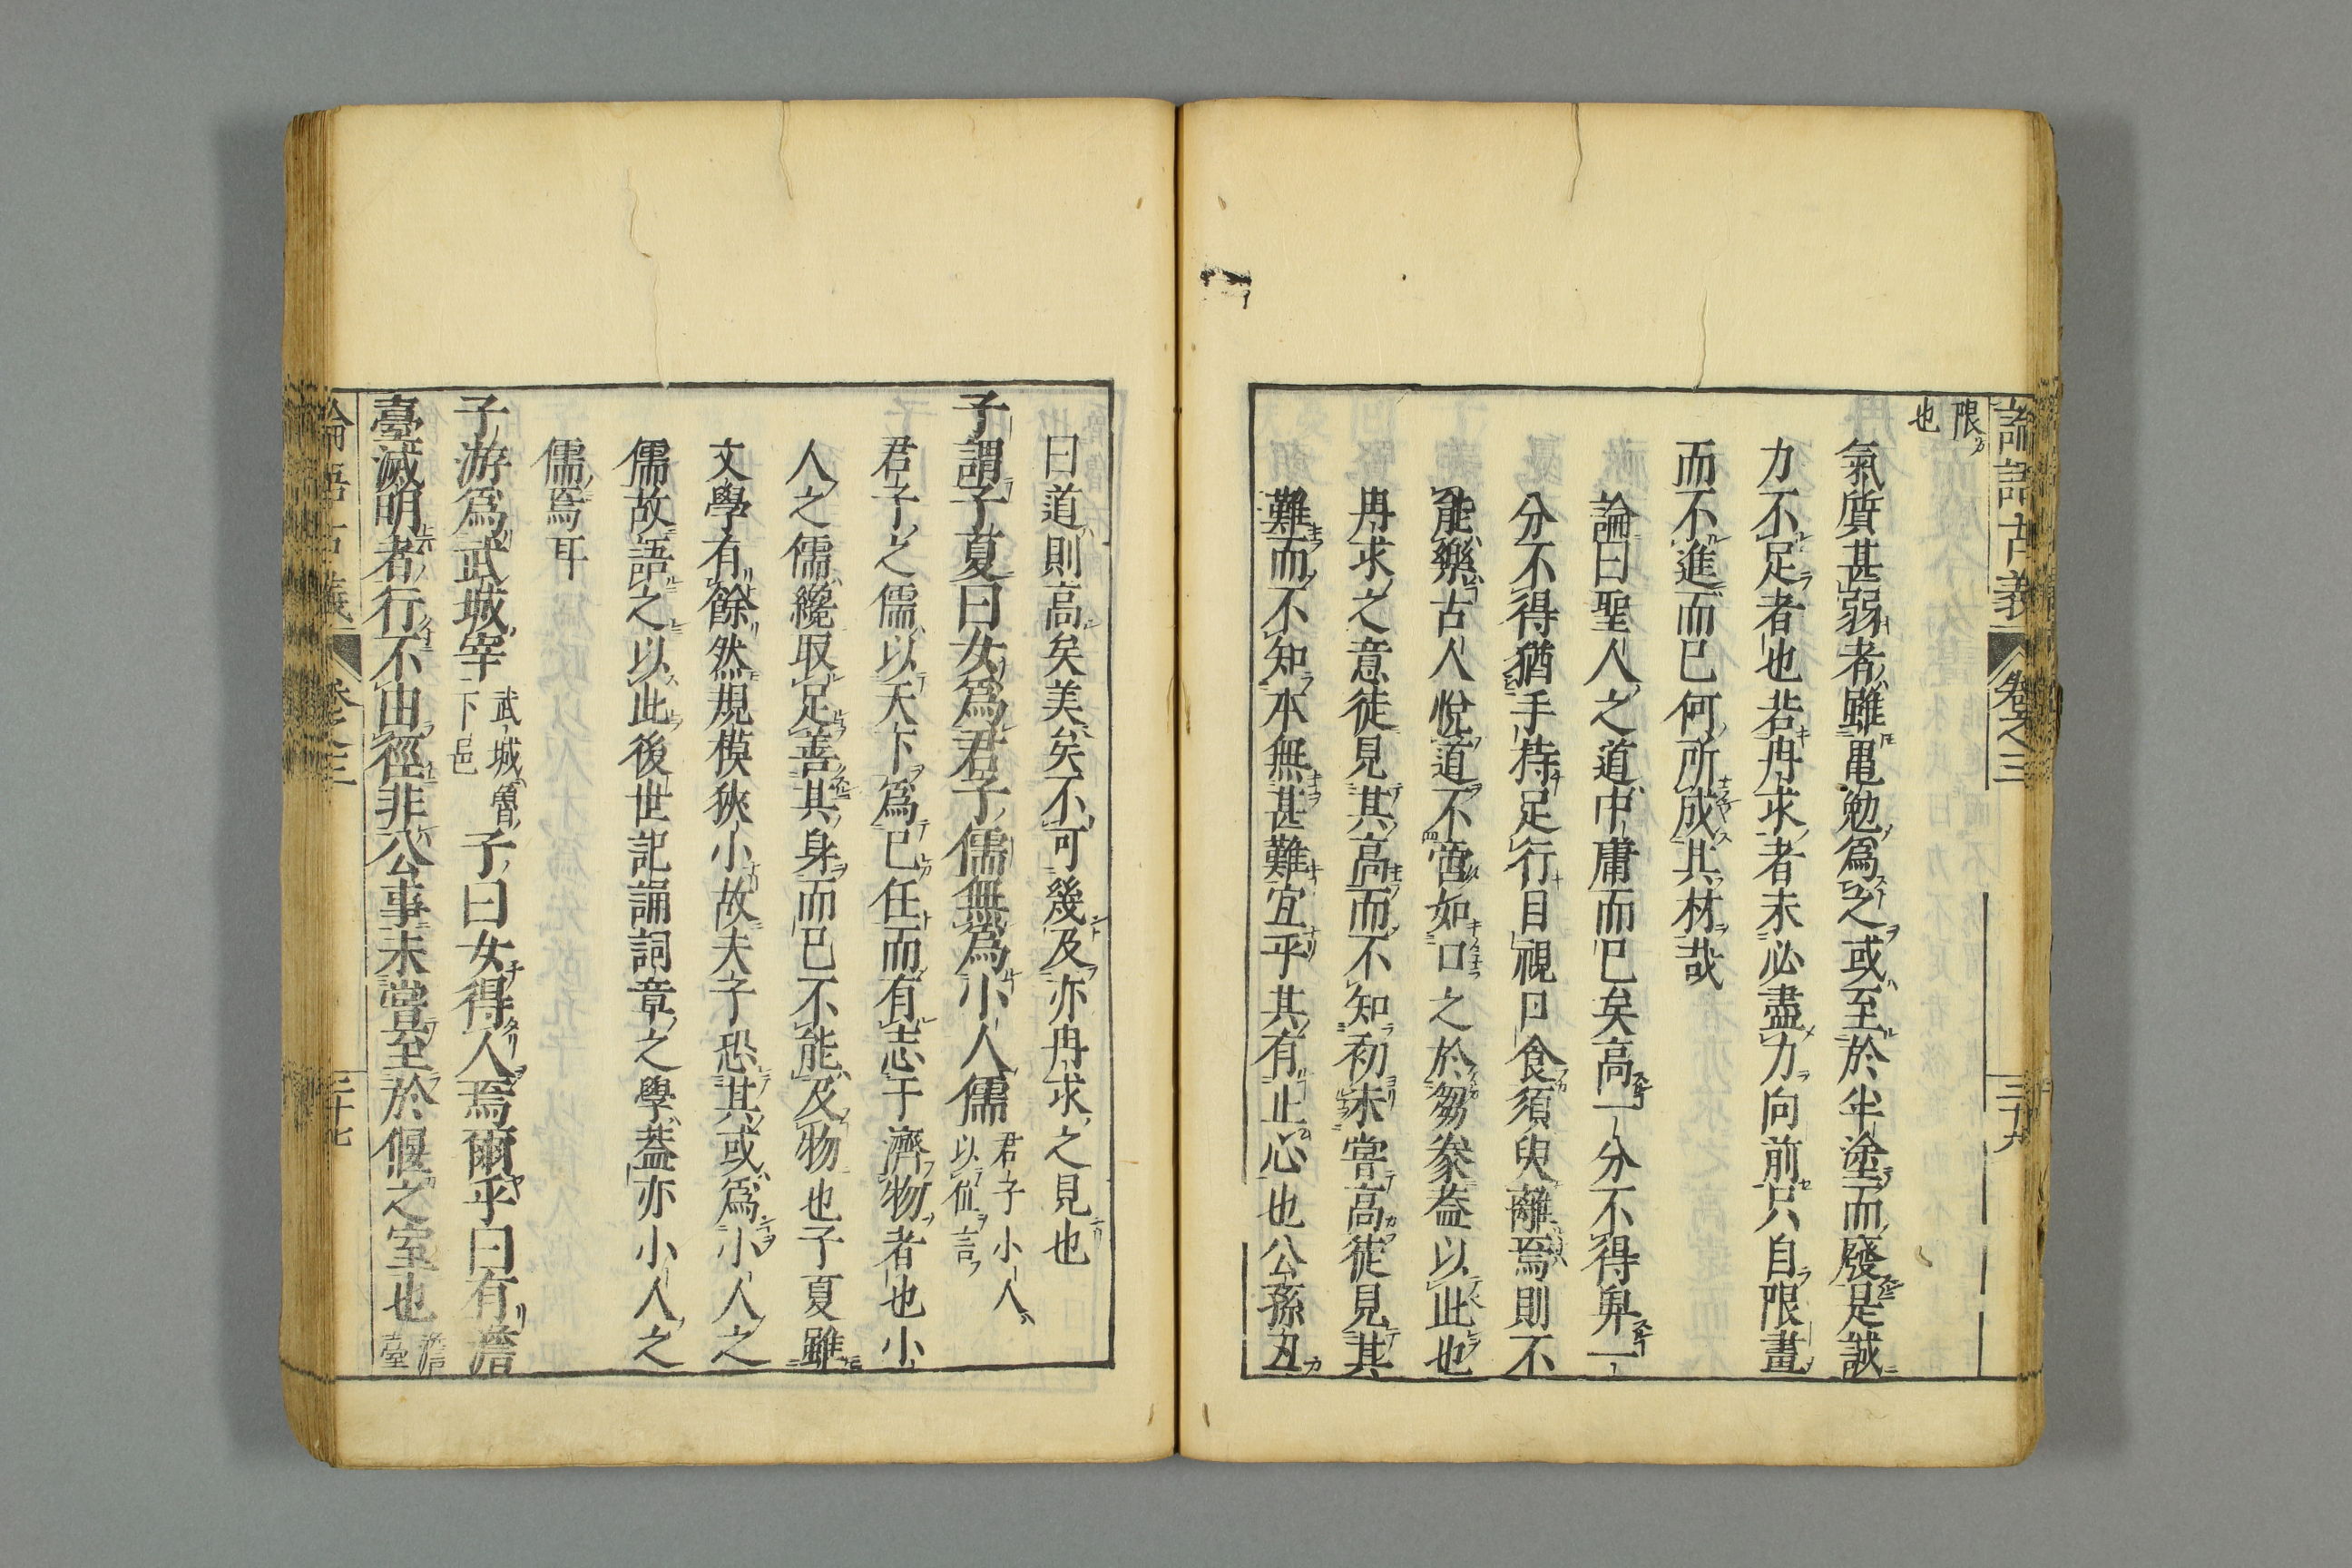 論語古義 卷之三 三十六
限也
氣質甚弱者雖黽勉爲之或至於半塗而廢是誠
力不足者也若冉求者未必盡力向前只自限畫
而不進而已何所成其材哉
論曰聖人之道中庸而已矣高一分不得卑一
分不得猶手持足行目視口食須臾離焉則不
能樂古人悅道不啻如口之於芻豢蓋以此也
冉求之意徒見其高而不知初未嘗高徒見其
難而不知本無甚難宜乎其有止心也公孫丑
曰道則高矣美矣不可幾及亦冉求之見也
子謂子夏曰女爲君子儒無爲小人儒 君子小人以位言
君子之儒以天下爲己任而有志于濟物者也小
人之儒纔取足善其身而已不能及物也子夏雖
文學有餘然規模狹小故夫子恐其或爲小人之
儒故語之以此後世記誦詞章之學蓋亦小人之
儒焉耳
子游爲武城宰 武城魯下邑 子曰女得人焉爾乎曰有澹
臺滅明者行不由徑非公事未嘗至於偃之室也 澹臺
論語古義 卷之三 三十七